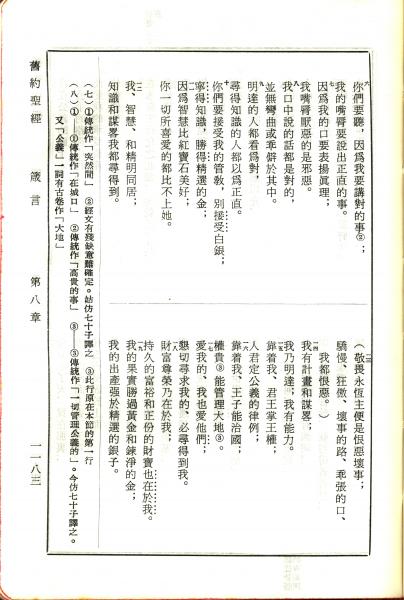 六 你們要聽,因爲我要講對的事②;
我的嘴脣要說出正直的事。
七 因爲我的口要表揚眞理;
我嘴脣厭惡的是邪惡。
八 我口中說的話都是對的,
並無彎曲或乖僻於其中。
九 明達的人都看爲對,
尋得知識的人都以爲正直。
一〇 你們要接受我的管敎,別接受白銀;
寧得知識,勝得精選的金;
一一 因爲智慧比紅寶石美好;
你一切所喜愛的都比不上她。
一二 我、智慧、和精明同居;
知識和謀畧我都尋得到。
一三 (敬畏永恒主便是恨惡壞事;
驕慢、狂傲、壞事的路、乖張的口、
我都恨惡。)
一四 我有計畫和謀畧;
我乃明達;我有能力。
一五 靠着我、君王掌王權,
一六 靠着我、王子能治國;
人君定公義的律例;
權貴③能管理大地③。
一七 愛我的、我也愛他們;
懇切尋求我的、必尋得到我。
一八 財富尊榮乃在於我;
持久的富裕和正份的財寶也在於我。
一九 我的果實勝過黃金和鍊淨的金;
我的出產強於精選的銀子。
(七)①傳統作「突然間」 ②經文有殘缺意難確定。姑仿七十子譯之 ③此行原在本節的第一行
(八)①——①傳統作「在城口」 ②傳統作「高貴的事」 ③——③傳統作「一切管理公義的」。今仿七十子譯之。
又「公義」一詞有古卷作「大地」
舊約聖經 箴言 第八章 一一八三